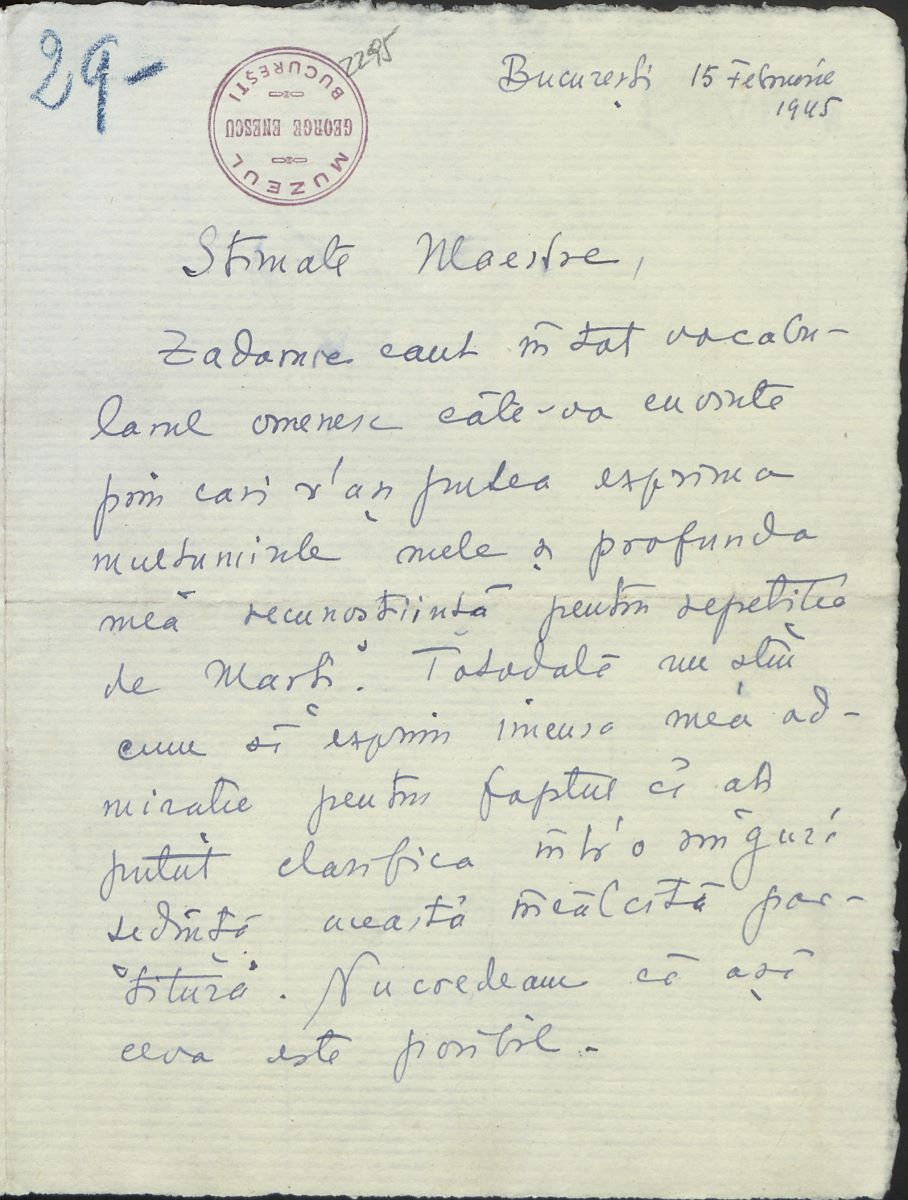 29-
2295
MUZEUL
GEORGE ENESCU
BUCUREȘTI
București 15 Februarie
1945
Stimate Maestre,
Zadarnic caut în tot vocabu-
larul omenesc câte-va cuvinte
prin cari v'aș putea exprima
mulțumirile mele și profunda
meă recunoștiință pentru repetiția
de Marți. Totodată nu știu
cum să exprim imensa meă ad-
mirație pentru faptul că ați
putut clarifica într'o singură
ședință această încâlcită par-
titură. Nu credeam că așă
ceva este posibil.-